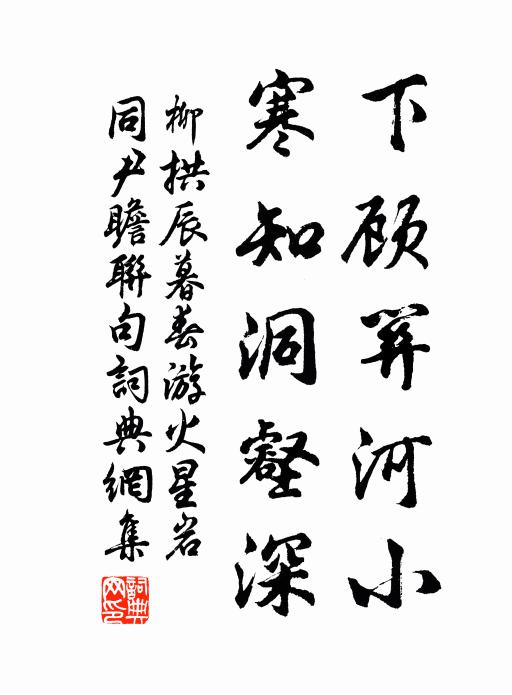 下顾關河小
寒知洞壑深
柳拱辰暮春游火星岩
同尹瞻聯句詞典網集
詞典网印